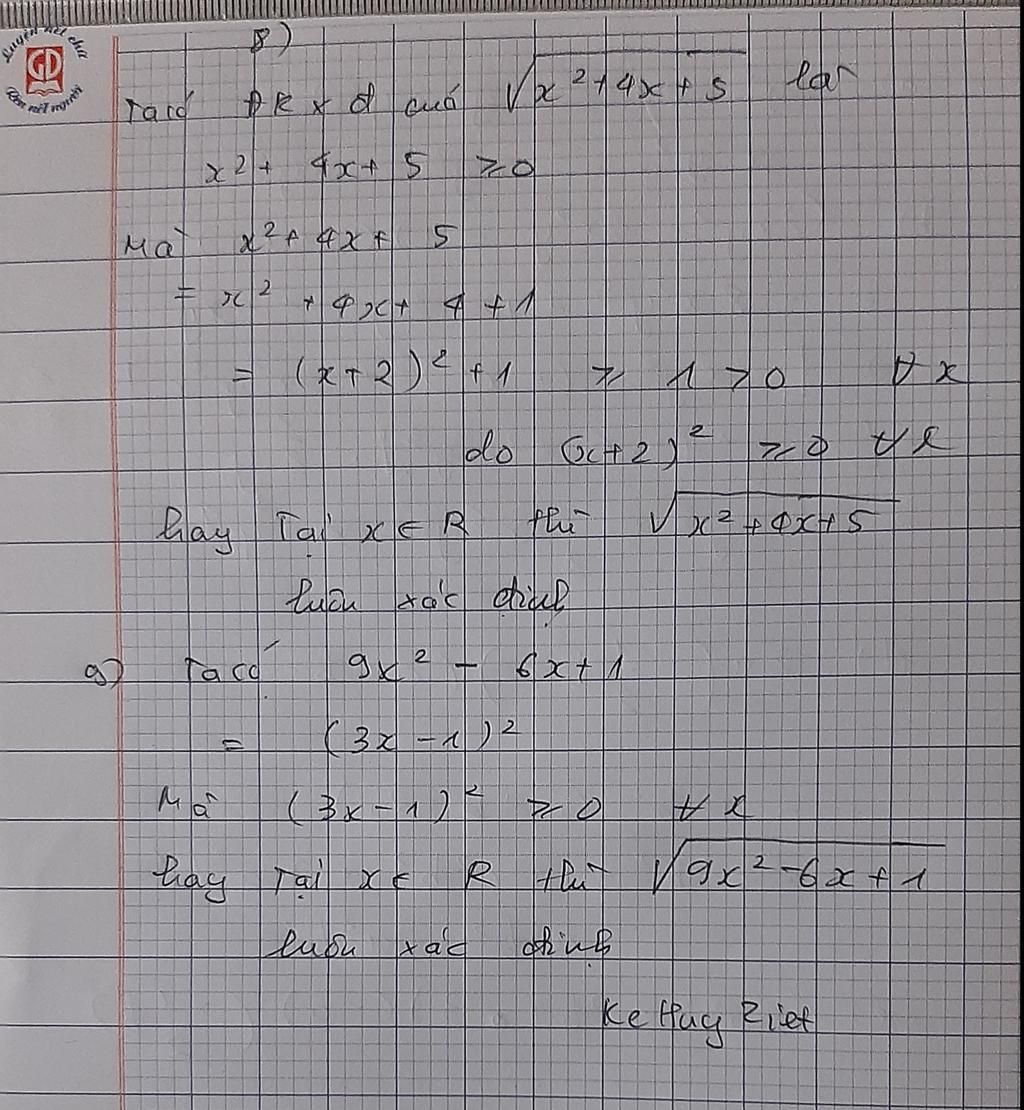 Luyện nét chữ
GD
Rèn nết người
8)
Ta có ĐKXĐ cuả √x²+4x+5 là
x²+ 4x+ 5 ⩾0
Mà x²+ 4x+ 5
= x² + 4x+ 4 +1
= (x+2)² +1 ⩾ 1 >0 ∀x
do (x+2)² ⩾0 ∀x
hay Tại x∈R thì √x²+4x+5
luôn xác định
9) Ta có 9x² - 6x+1
= (3x-1)²
Mà (3x-1)² ⩾0 ∀x
hay Tại x∈ R thì √9x²-6x+1
luôn xác định
Ke Huy Riet